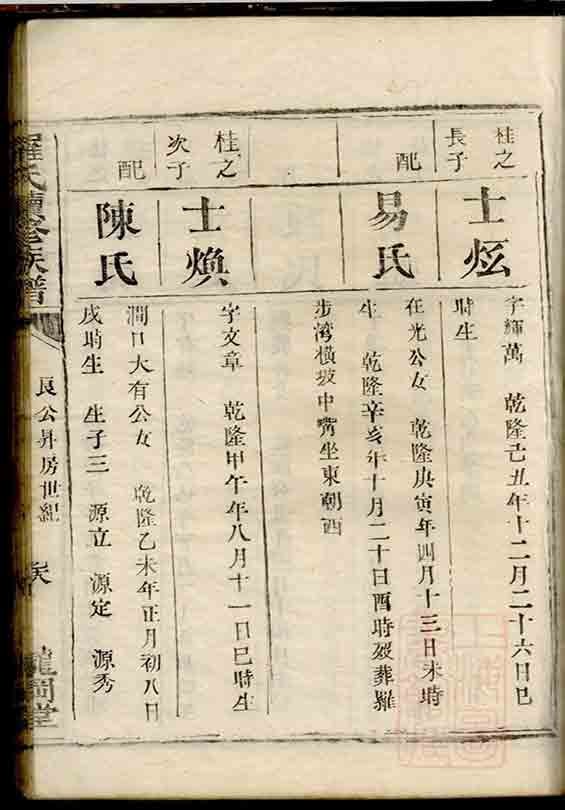 桂之
長子
士炫
字輝萬　乾隆己丑年十二月二十六日巳
時生
配
易氏
在光公女　乾隆庚寅年四月十三日未時
生　乾隆辛亥年十月二十日酉時歿葬羅
步湾横坡中嘴坐東朝西
桂之
次子
士煥
字文章　乾隆甲午年八月十一日巳時生
配
陳氏
澗口大有公女　乾隆乙未年正月初八日
戌時生　生子三　源立　源定　源秀
羅氏續修族譜
良公昇房世紀